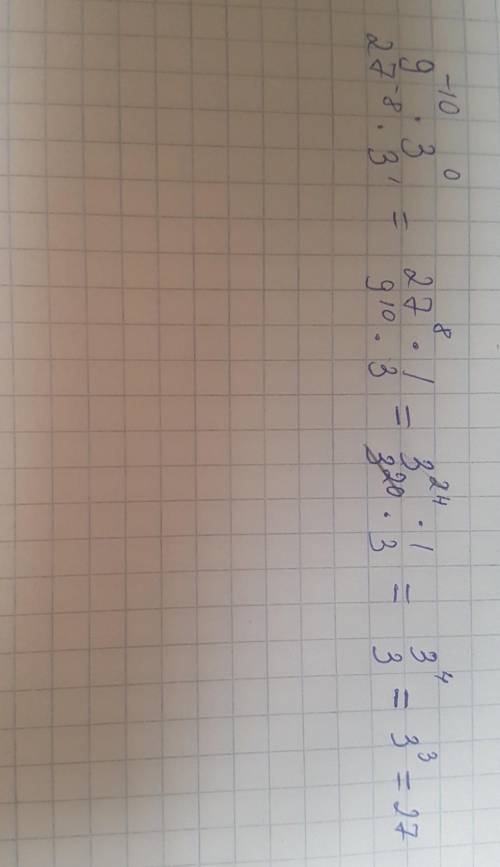 9⁻¹⁰ · 3⁰ / 27⁻⁸ · 3¹ = 27⁸ · 1 / 9¹⁰ · 3 = 3²⁴ · 1 / 3²⁰ · 3 = 3⁴ / 3 = 3³ = 27